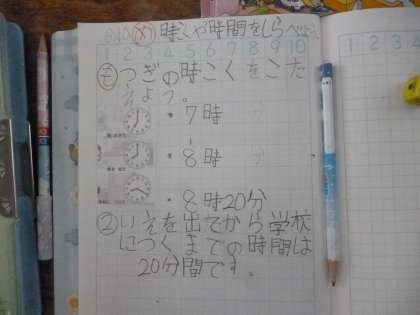 め 時こくや時間をしらべよう
1 2 3 4 5 6 7 8 9 10
1 2 3 4
つぎの時こくをこた
えよう。
・7時
・8時
・8時20分
② いえを出てから学校
につくまでの時間は
20分間です。